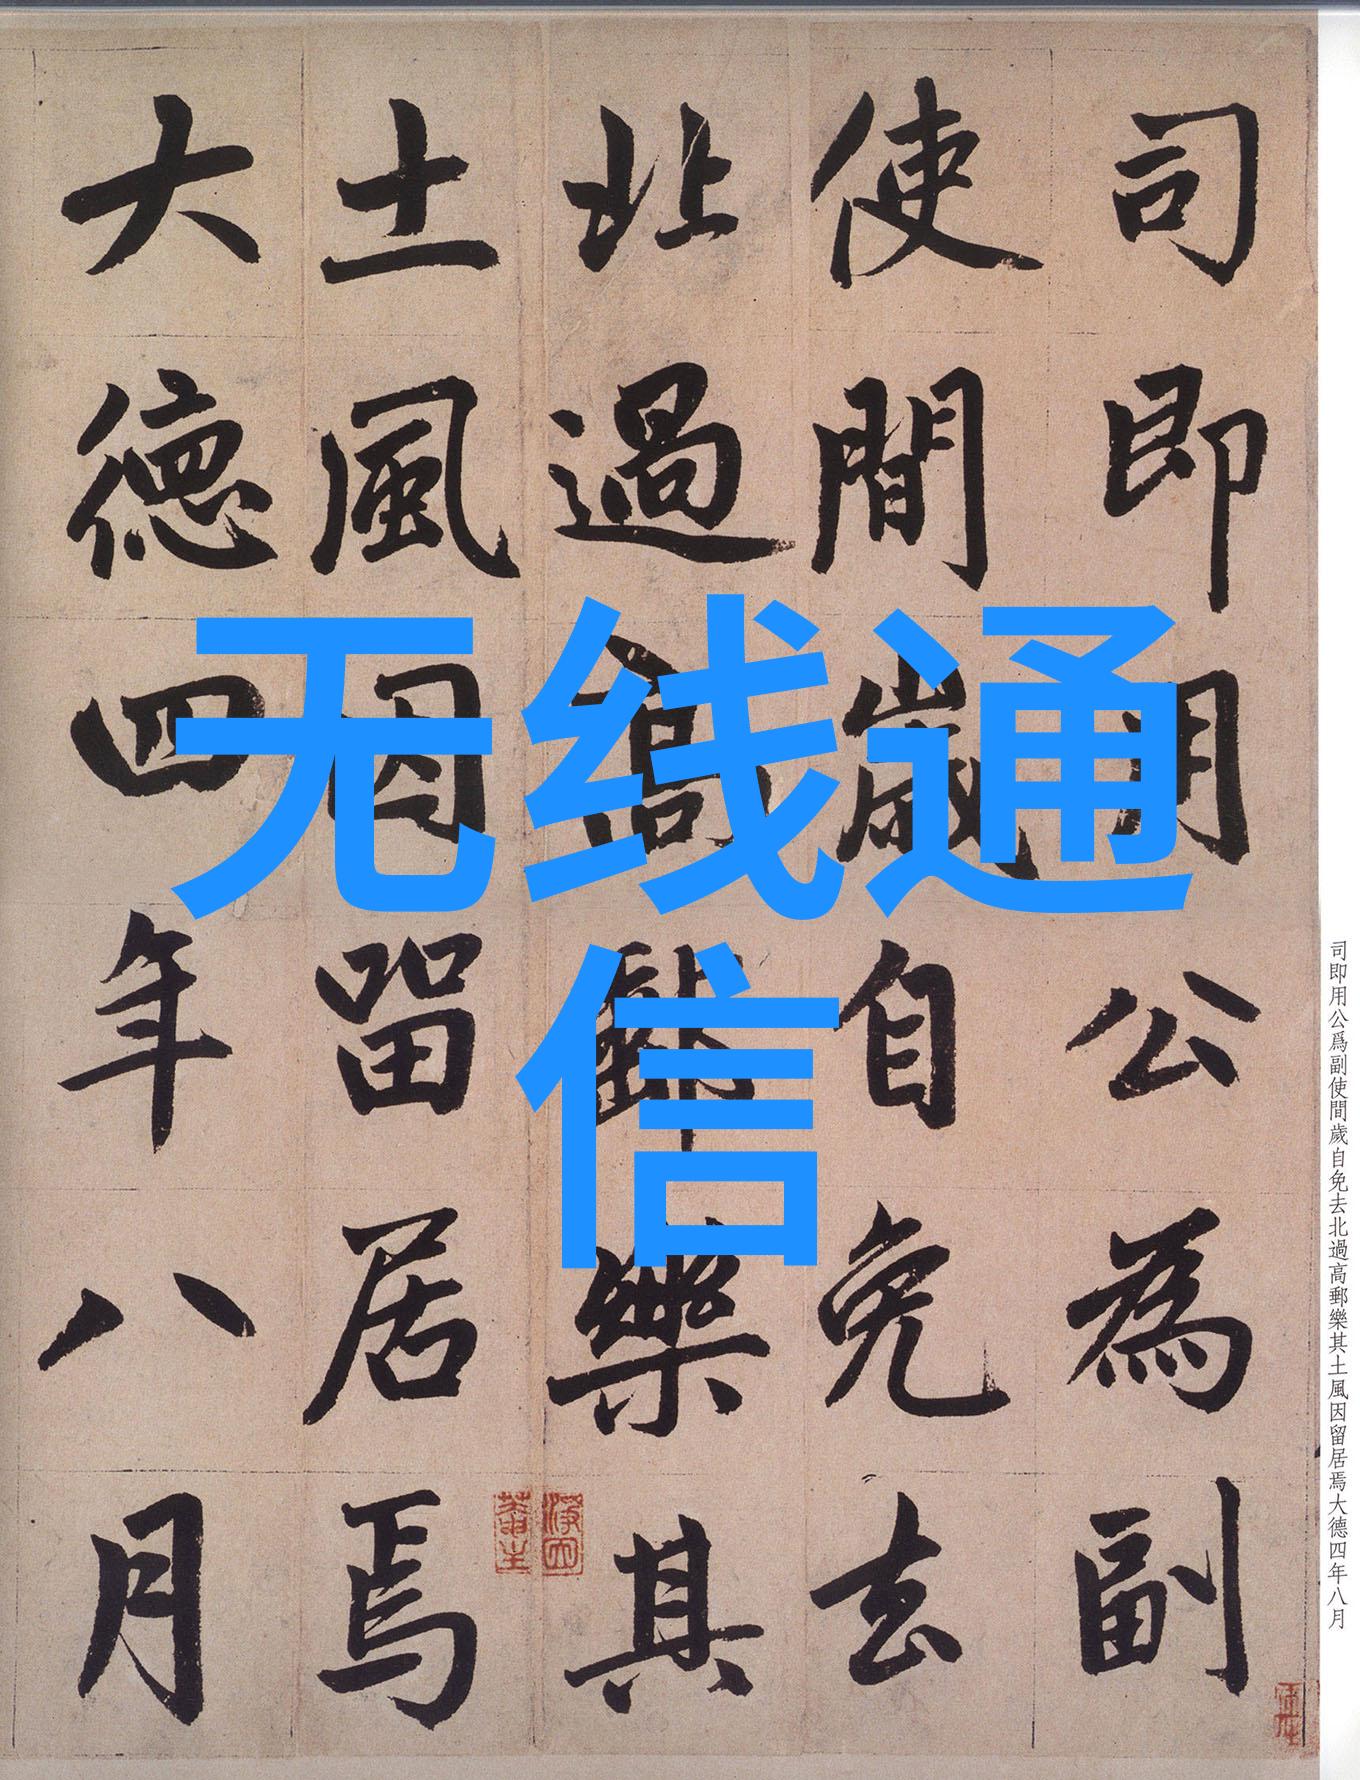 司即用公為副
使間歲自免去
北過高郵樂其
土風因留居焉
大德四年八月
无线通
信
司即用公爲副使間歲自免去北過高郵樂其土風因留居焉大德四年八月